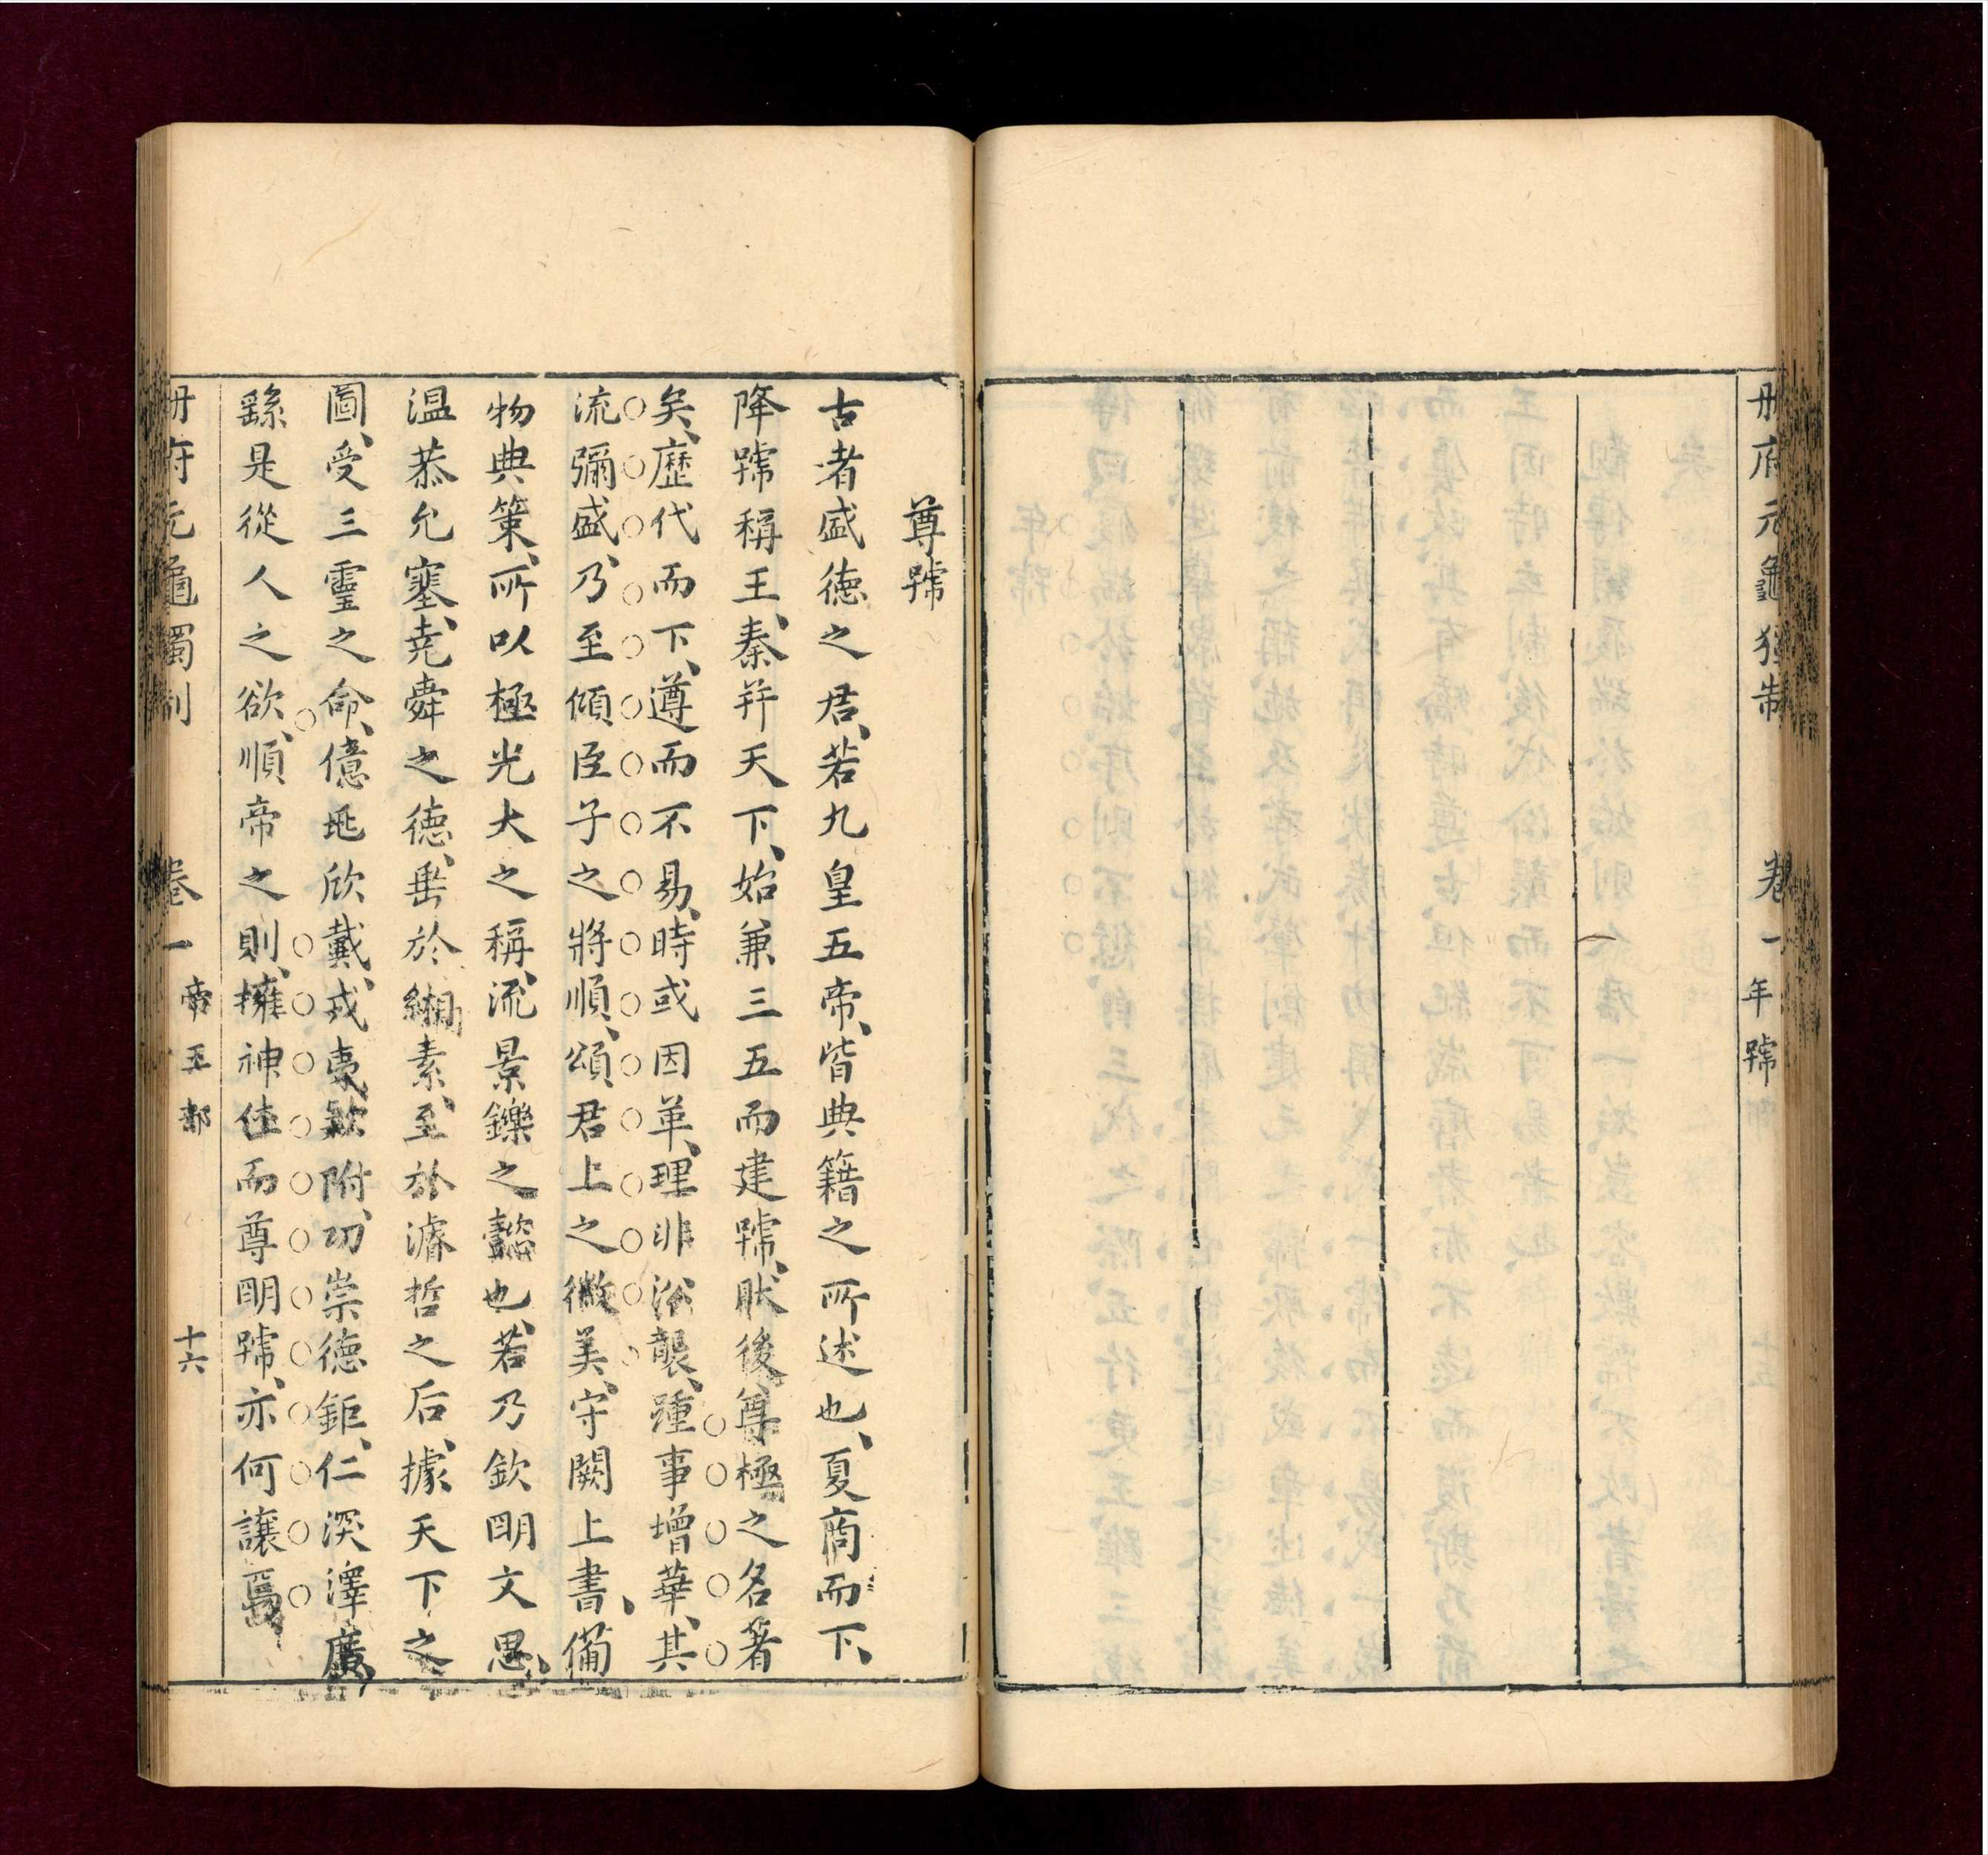 冊府元龜獨制
卷一
年號
尊號
古者盛德之君、若九皇五帝、皆典籍之所述也、夏商而下、
降號稱王、秦并天下、始兼三五而建號、肰後尊極之名著
矣、歷代而下、遵而不易、時或因革、理非沿襲、踵事增華、其
流彌盛、乃至傾臣子之將順、頌君上之徽美、守闕上書、備
物典策、所以極光大之稱、流景鑠之懿也、若乃欽明文思、
温恭允塞、堯舜之德、垂於緗素、至於濬哲之后、據天下之
圖、受三靈之命、億㲝欣戴、戎夷欵附、功崇德鉅、仁深澤廣、
繇是從人之欲、順帝之則、擁神休而尊明號、亦何讓焉
冊府元龜獨制
卷一
帝王部
十六